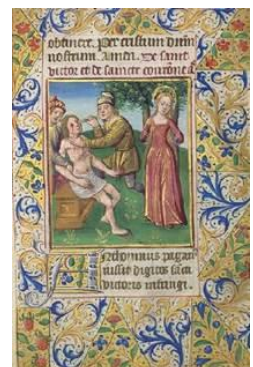 obtinere. Per cristum dnm
nostrum. Amen. De sainct
victor et de saincte couronne a
Anthominus pagan
iussit digitos sancti
victoris infringi.